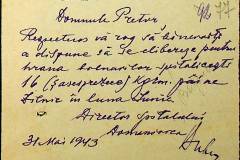 92 77
Domnule Pretor
Respectuos vă rog să binevoiți
a dispune să se elibereze pentru
hrana bolnavilor spitalicești
16 (șaisprezece) Kgrm. pâine
zilnic în luna Iunie
Director Spitalului
31 Mai 1943